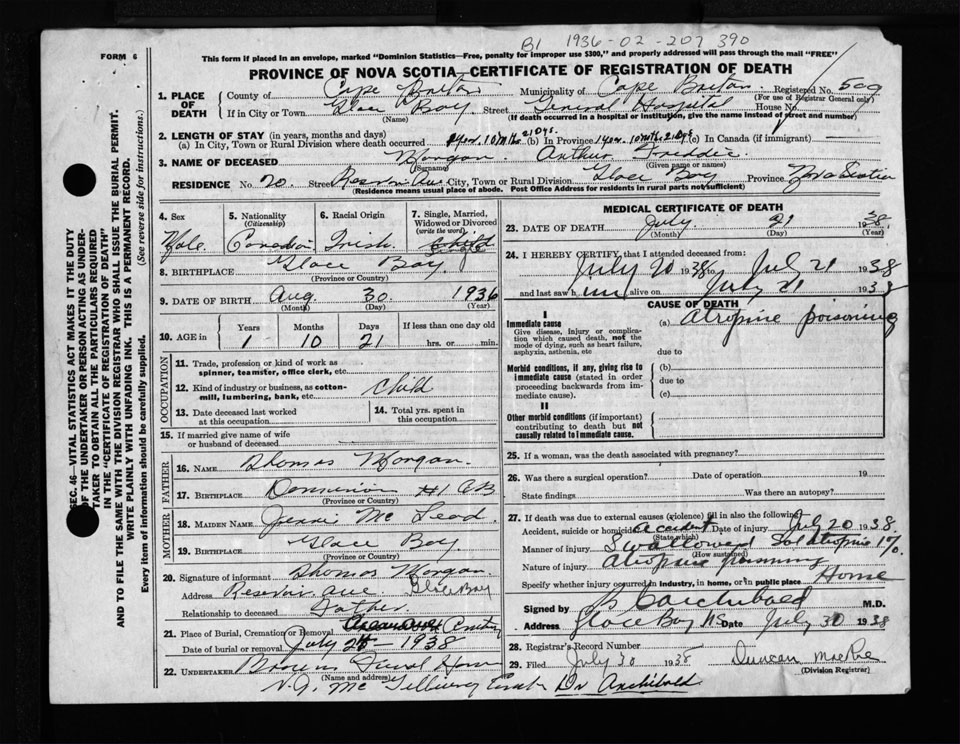 B1 1936-02-207 390
FORM 6
This form if placed in an envelope, marked "Dominion Statistics—Free, penalty for improper use $300," and properly addressed will pass through the mail "FREE"
PROVINCE OF NOVA SCOTIA—CERTIFICATE OF REGISTRATION OF DEATH
1. PLACE OF DEATH
County of Cape Breton Municipality of Cape Breton Registered No. 509
(For use of Registrar General only)
If in City or Town Glace Bay Street General Hospital House No.
(Name) (If death occurred in a hospital or institution, give the name instead of street and number)
2. LENGTH OF STAY (in years, months and days)
(a) In City, Town or Rural Division where death occurred 1 year 10 mths 21 Dys. (b) In Province 1 year 10 mth. 21 Dys (c) In Canada (if immigrant)
3. NAME OF DECEASED Morgan Arthur
(Surname) (Given name or names)
RESIDENCE No. 70. Street Reservoir Ave City, Town or Rural Division Glace Bay Province Nova Scotia
(Residence means usual place of abode. Post Office Address for residents in rural parts not sufficient)
4. Sex
Male
5. Nationality (Citizenship)
Canadian
6. Racial Origin
Irish
7. Single, Married, Widowed or Divorced (write the word)
8. BIRTHPLACE Glace Bay
(Province or Country)
9. DATE OF BIRTH Aug. 30. 1936
(Month) (Day) (Year)
10. AGE in
Years Months Days If less than one day old
1 10 21 hrs. or min.
OCCUPATION
11. Trade, profession or kind of work as spinner, teamster, office clerk, etc.
12. Kind of industry or business, as cotton-mill, lumbering, bank, etc. Child
13. Date deceased last worked at this occupation
14. Total yrs. spent in this occupation
15. If married give name of wife or husband of deceased
FATHER
16. NAME Thomas Morgan.
17. BIRTHPLACE Dominion #1 CB
(Province or Country)
MOTHER
18. MAIDEN NAME Jennie Mc Leod
19. BIRTHPLACE Glace Bay.
(Province or Country)
20. Signature of informant Thomas Morgan
Address Reservoir ave. Glace Bay
Relationship to deceased Father
21. Place of Burial, Cremation or Removal
Date of burial or removal July 1938
22. UNDERTAKER Browns Funeral Home
(Name and address)
Dr Archibald
MEDICAL CERTIFICATE OF DEATH
23. DATE OF DEATH July 21 1938
(Month) (Day) (Year)
24. I HEREBY CERTIFY, that I attended deceased from:
July 20 1938 to July 21 1938
and last saw him alive on July 21 1938
CAUSE OF DEATH
I
Immediate cause
Give disease, injury or complication which caused death, not the mode of dying, such as heart failure, asphyxia, asthenia, etc
(a) atropine poisoning
due to
Morbid conditions, if any, giving rise to immediate cause (stated in order proceeding backwards from immediate cause)
(b)
due to
(c)
II
Other morbid conditions (if important) contributing to death but not causally related to immediate cause.
25. If a woman, was the death associated with pregnancy?
26. Was there a surgical operation? Date of operation 19
State findings Was there an autopsy?
27. If death was due to external causes (violence) fill in also the following
Accident, suicide or homicide Accident Date of injury July 20 1938.
(State which)
Manner of injury Swallowed Sol atropine 1%
(How sustained)
Nature of injury atropine poisoning
Specify whether injury occurred in industry, in home, or in public place Home
Signed by B C Archibald M.D.
Address Glace Bay NS Date July 30 1938
28. Registrar's Record Number
29. Filed July 30 1938 Duncan MacRae
(Division Registrar)
SEC. 46—VITAL STATISTICS ACT MAKES IT THE DUTY
OF THE UNDERTAKER OR PERSON ACTING AS UNDER-
TAKER TO OBTAIN ALL THE PARTICULARS REQUIRED
IN THE "CERTIFICATE OF REGISTRATION OF DEATH"
AND TO FILE THE SAME WITH THE DIVISION REGISTRAR WHO SHALL ISSUE THE BURIAL PERMIT.
WRITE PLAINLY WITH UNFADING INK. THIS IS A PERMANENT RECORD.
Every item of information should be carefully supplied. (See reverse side for instructions.)